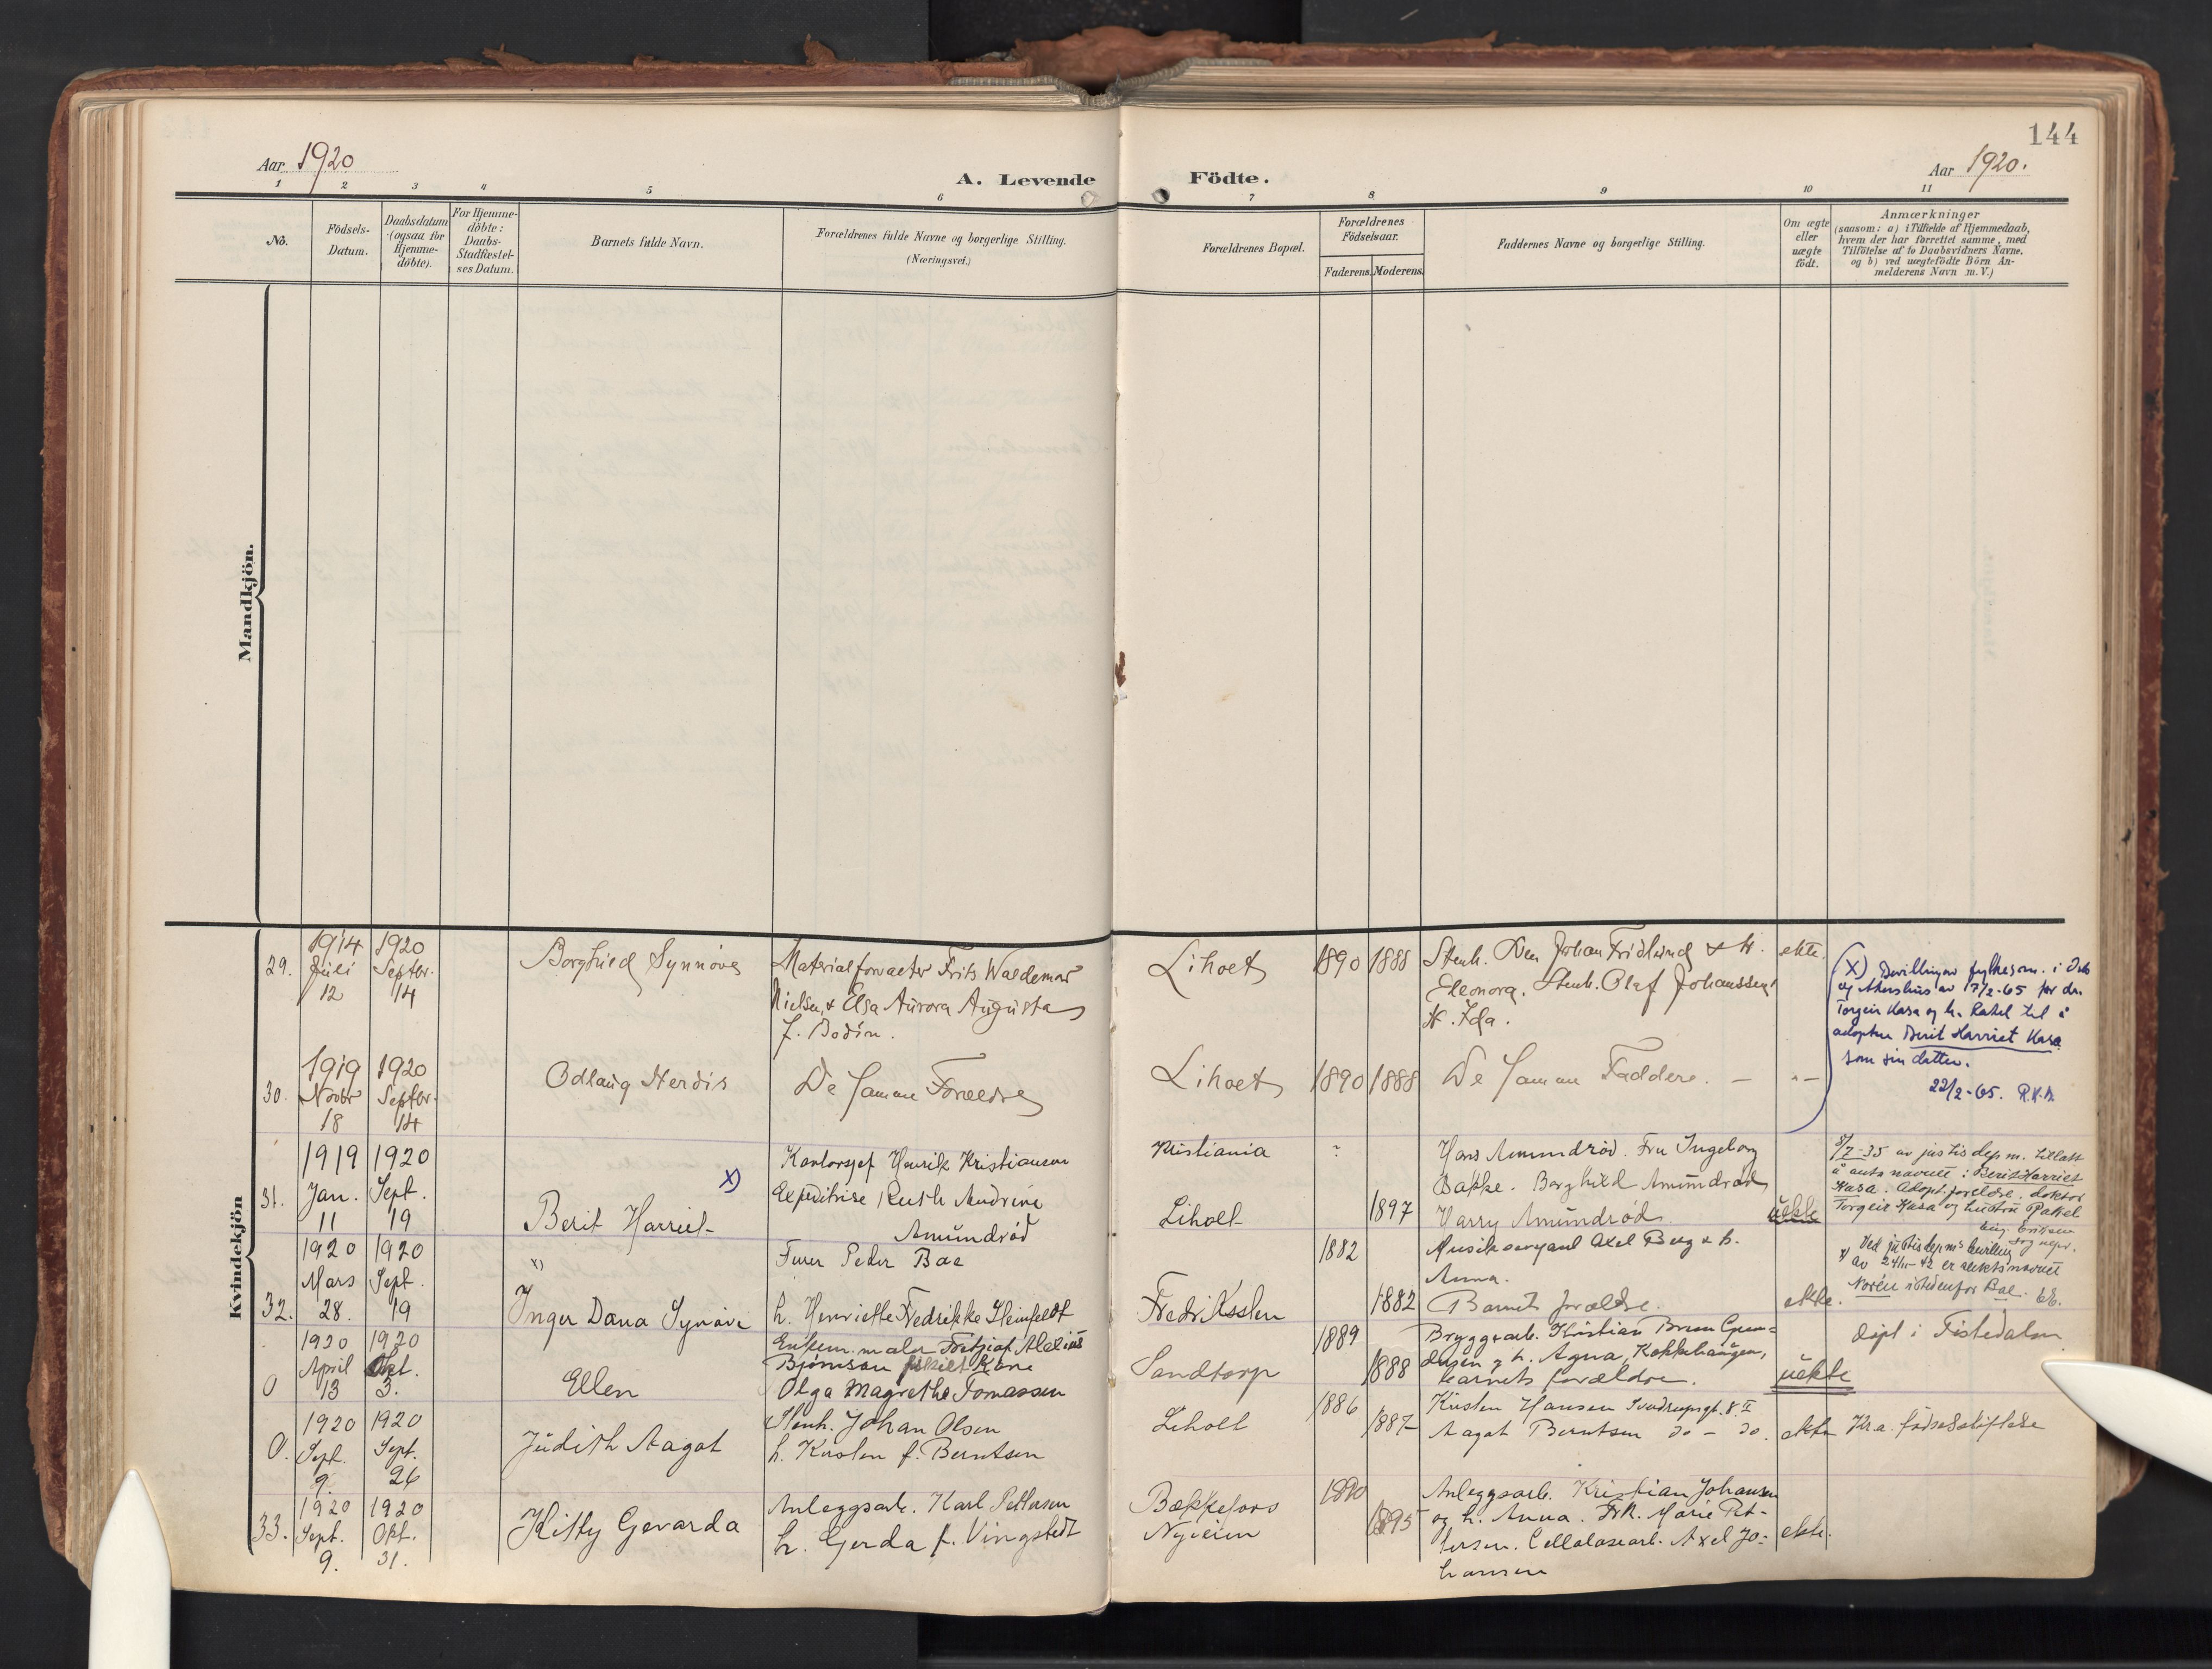 144
Aar 1920
A. Levende Födte.
Aar 1920.
1 2 3 4 5 6 7 8 9 10 11
No.
Födsels-
Datum.
Daabsdatum
(ogsaa for
Hjemme-
döbte).
For Hjemme-
döbte:
Daabs-
Stadfæstel-
ses Datum.
Barnets fulde Navn.
Forældrenes fulde Navne og borgerlige Stilling.
(Næringsvei.)
Forældrenes Bopæl.
Forældrenes
Födselsaar.
Faderens. Moderens.
Faddernes Navne og borgerlige Stilling.
Om ægte
eller
uægte
födt.
Anmærkninger
(saasom: a) i Tilfælde af Hjemmedaab,
hvem der har forrettet samme, med
Tilföielse af to Daabsvidners Navne.
og b) ved uægtefödte Börn An-
melderens Navn m. V.)
Mandkjön.
Kvindekjön
29.
1914
Juli
12
1920
Septbr.
14
Borghild Synnöve
Materialforvalter Frits Waldemar
Nielsen, & Elsa Aurora Augusta
f. Bodin.
Liholt
1890 1888
Johan Fridlund & H.
Eleonora. Stenh. Olaf Johanssen
H. Ida.
ekte.
30.
1919
Novbr
18
1920
Septbr.
14
Odlaug Herdis
De samme Forældre
Liholt
1890 1888
De samme Faddere. — " —
31.
1919
Jan.
11
1920
Sept.
19
x)
Berit Harriet
Kontorsjef Henrik Kristiansen
Expeditrise Ruth Andrine
Amundrød
Kristiania
Liholt
?
1897
Hans Amundrød. Fru Ingeborg
Bakke. Borghild Amundrød
Harry Amundrød
uekte
x) Bevillning av fylkesm. i Oslo
og Akershus av 17/2-65 for dr.
Torgeir Kasa og h. Rakel til å
adoptere Berit Harriet Kasa
som sin datter.
22/2-65. R.K.B.
8/7-35 av justisdepm. tillatt
å anta navnet: Berit Harriet
Kasa. Adopt.foreldre: doktor
Torgeir Kasa og hustru Rakel
Eriksen
sognepr.
32.
1920
Mars
28.
1920
Sept.
19
x)
Inger Dana Synöve
Furer Peder Boe
h. Henriette Fredrikke Heinfeldt
Fredriksten
1882
1882
Musiksersjant Axel Berg & h.
Anna.
Barnets forældre.
ekte.
x) Ved justisdepms bevilling
av 24/11-42 er slektsnavnet
Norén istedenfor Boe.
0
1920
April
13
1920
Okt.
3.
Ellen
Enkem. maler Fritjof Alexius
Björnson fskilt Kone
Olga Magrethe Tomassen
Sandtorp
1889
1888
Bryggearb. Kristian
og h. Agna, Kokkehaugen,
barnets forældre.
uekte
døpt i Tistedalen
0.
1920
Sept.
9.
1920
Sept.
26
Judith Aagot
Stenh. Johan Olsen
h. Kirsten f. Berntsen
Liholt
1886
1887
Kirsten Hansen
Aagot Berntsen do - do.
ekte
Kr.a. fødselsstiftelse
33.
1920
Sept.
9.
1920
Okt.
31.
Kitty Gevarda
Anleggsarb. Karl Pettersen
h. Gerda f. Vingstedt
Bækkefors
Nyheim
1890
1895
Anleggsarb. Kristian Johansen
og h. Anna. Frk. Marie Pet-
tersen. Cellulosearb. Axel Jo-
hansen
ekte.